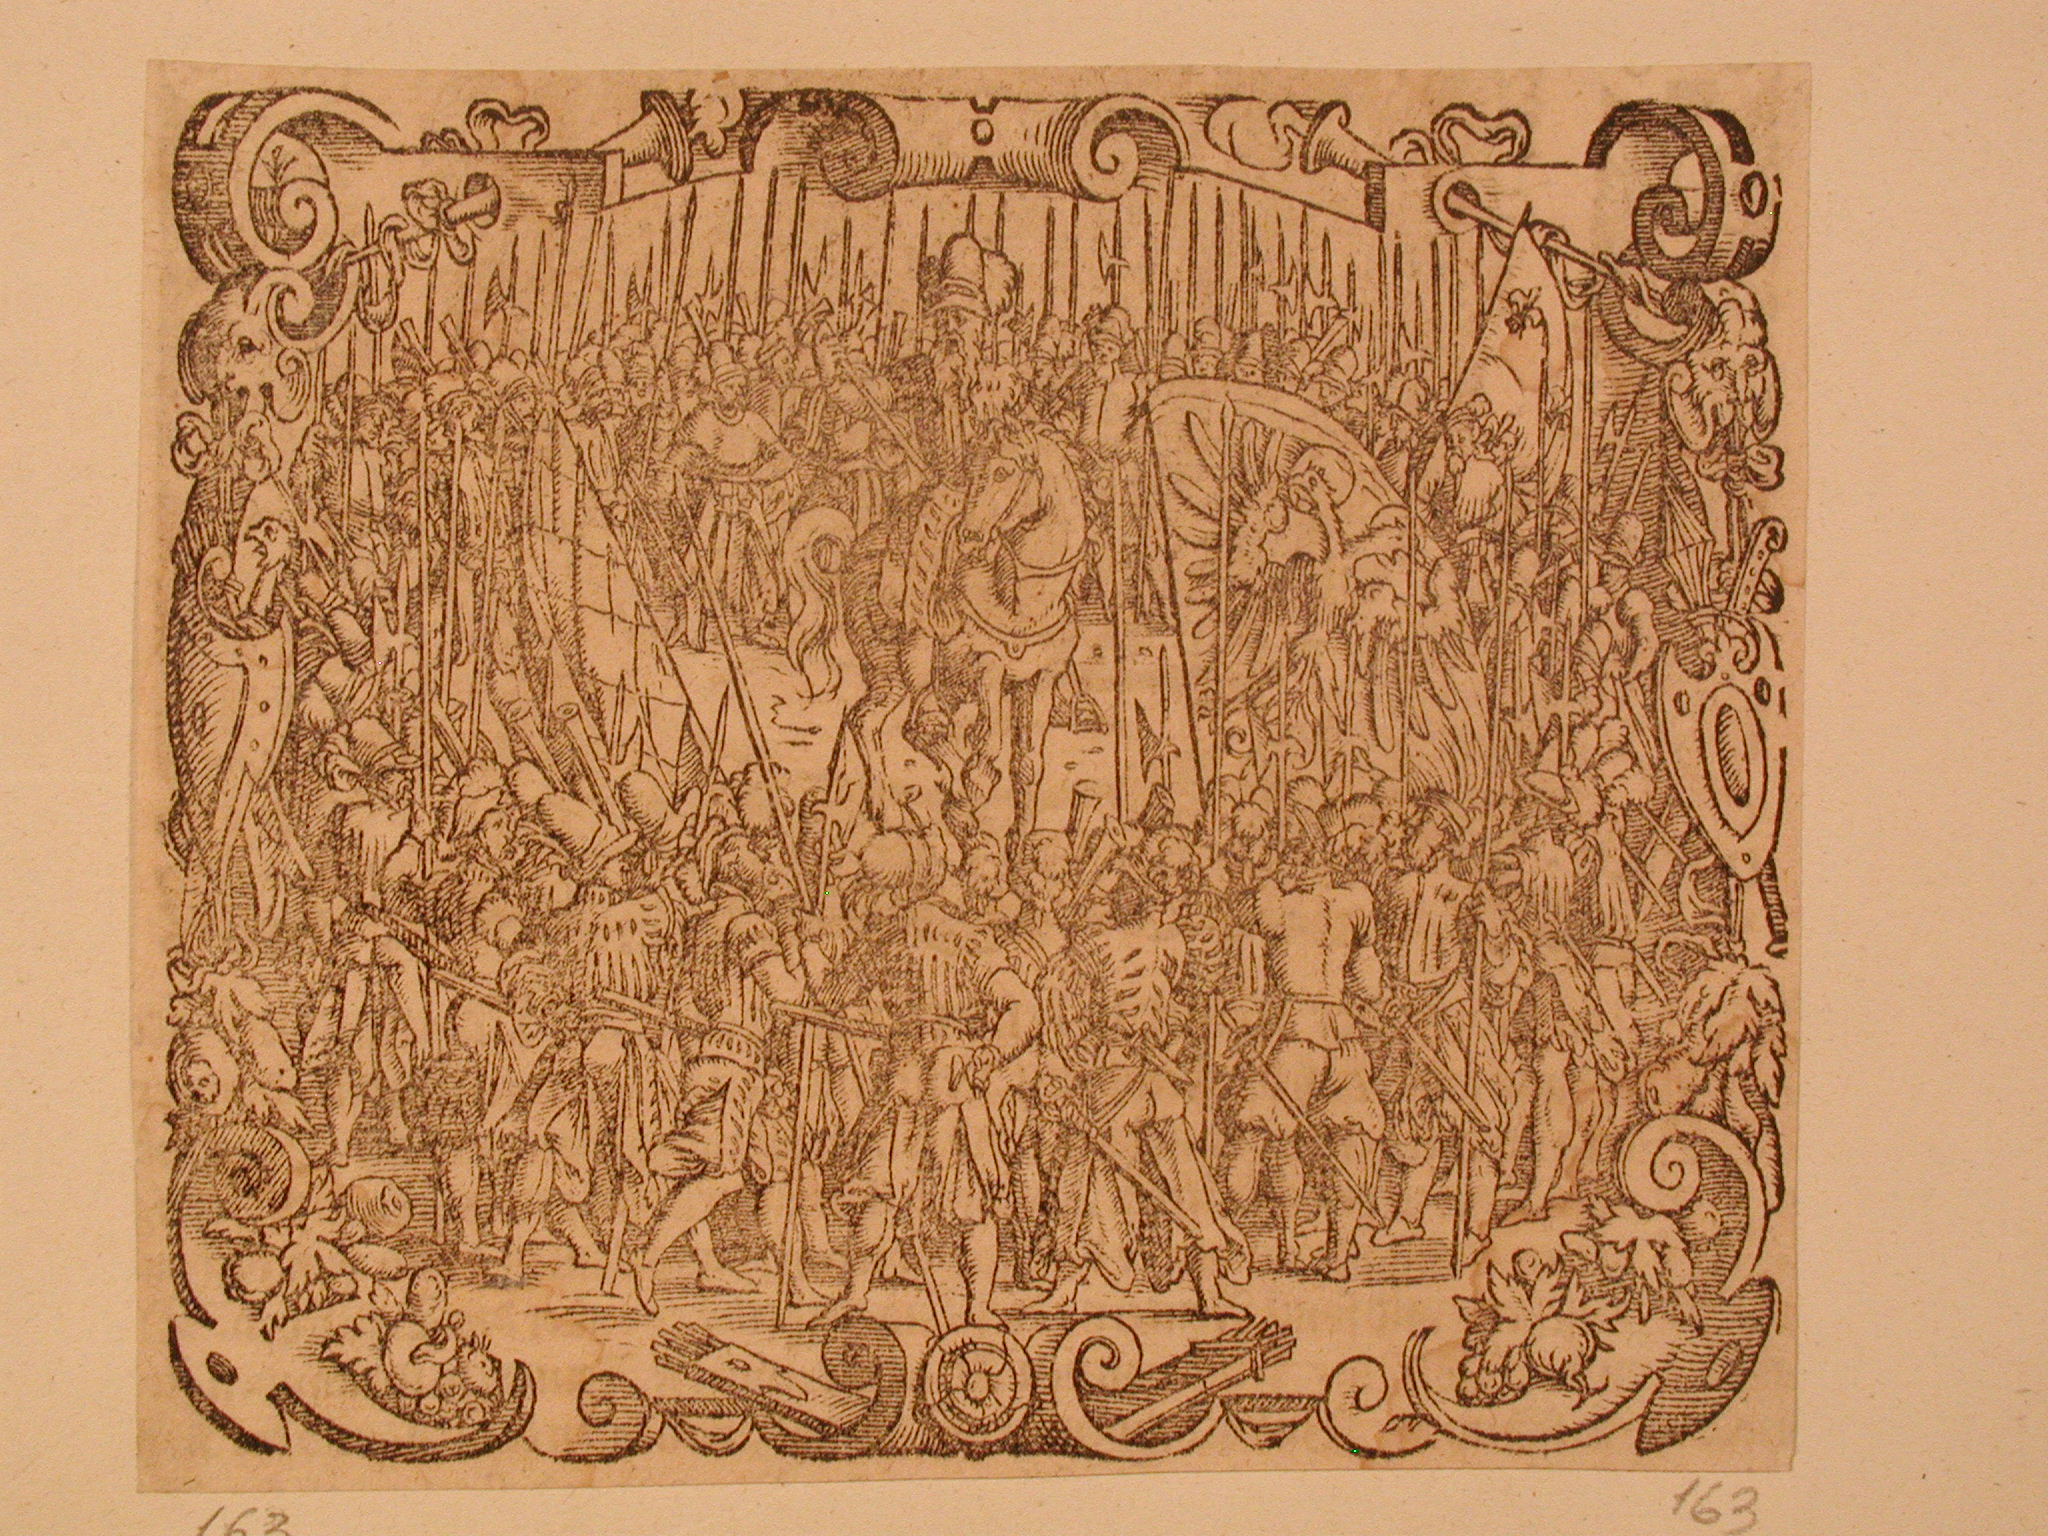 163
163